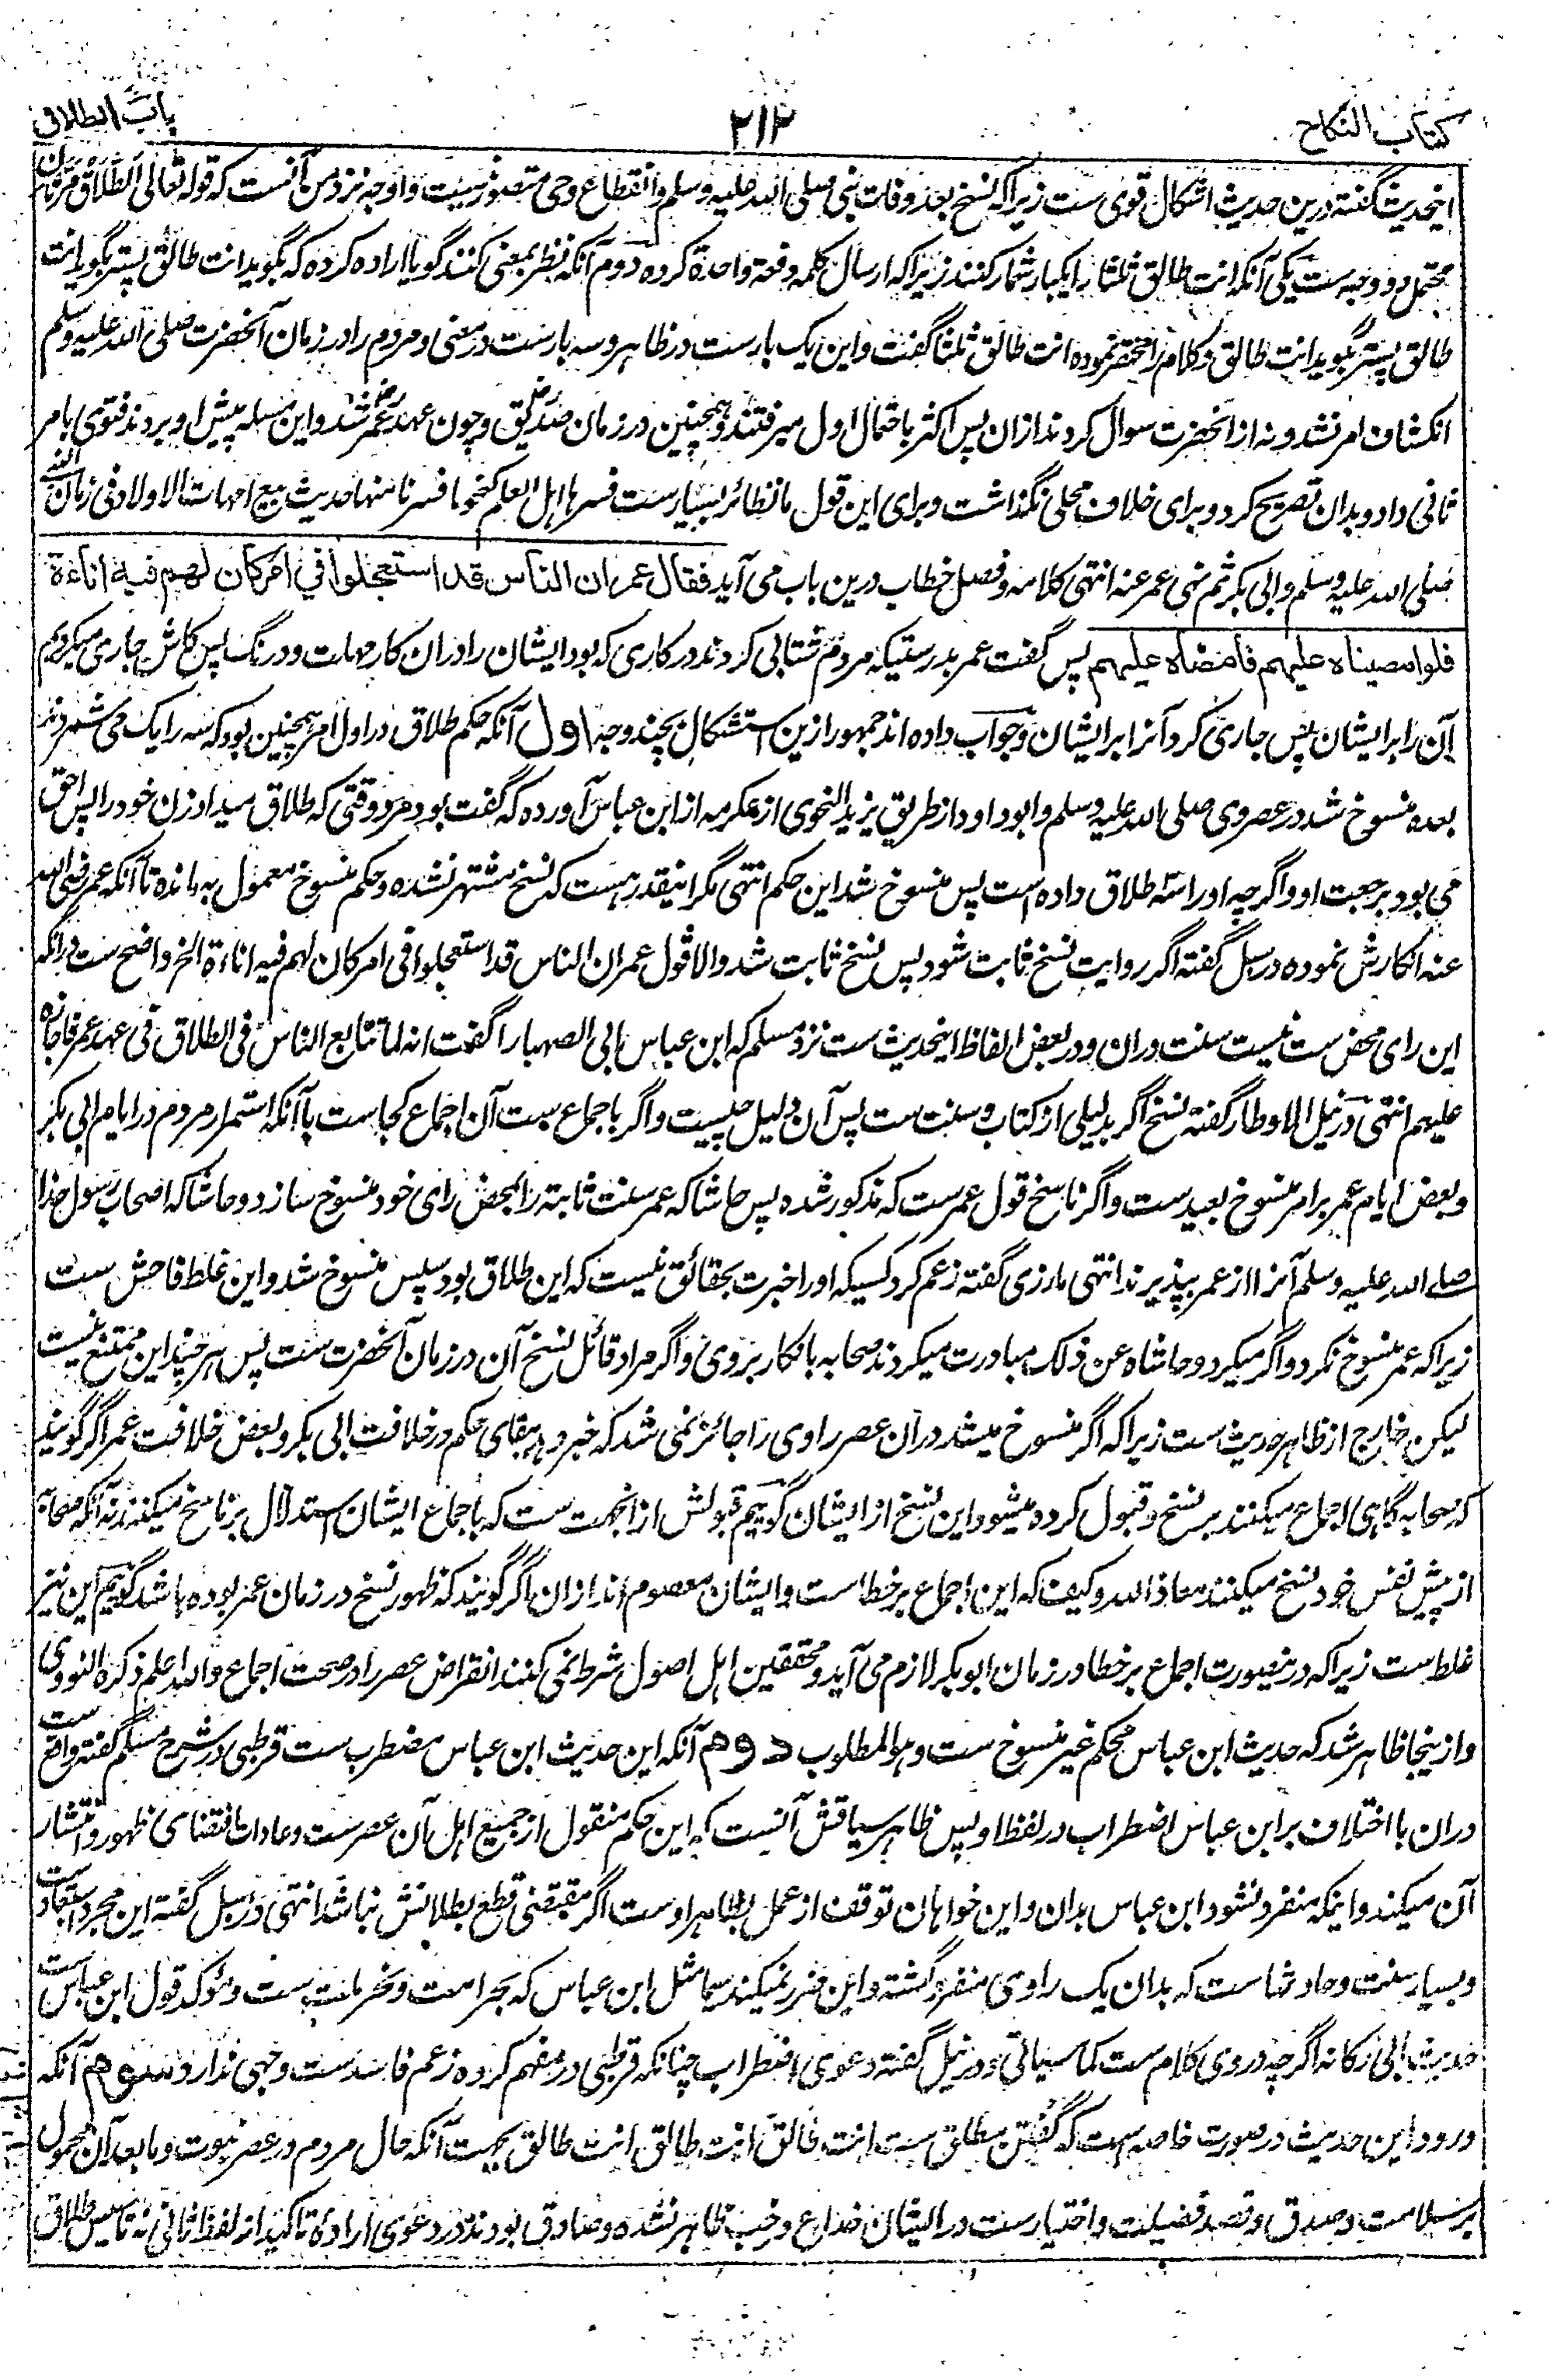 کتاب النکاح
۲۱۲
باب الطلاق
اینحدیث گفته درین حدیث اشکال قوی ست زیراکه نسخ بعد وفات نبی صلی الله علیه وسلم وانقطاع وحی متصور نیست واوجه نزد من آنست که قوله تعالی الطلاق مرتان
محتمل دو وجه ست یکی آنکه انت طالق ثلثا را یکبار شمار کنند زیراکه ارسال کلمه دفعة واحدة کرده دوم آنکه نظر بمعنی کنند گویا اراده کرده که بگوید انت طالق پستر بگوید انت
طالق پستر بگوید انت طالق وکلام را مختصر نموده انت طالق ثلثا گفت واین یک بار ست در ظاهر وسه بار ست در معنی ومردم را در زمان آنحضرت صلی الله علیه وسلم
انکشاف امر نشد ونه از آنحضرت سوال کردند ازان پس اکثر باحتمال اول میرفتند وهمچنین در زمان صدیق وچون عهد عمر شد واین مسله پیش او بردند فتوی بامر
ثانی داد وبدان تصریح کرد وبرای خلاف محلی نگذاشت وبرای این قول ما نظائر بسیار ست فسرها اهل العلم کنحو ما فسرنا منها حدیث بیع امهات الاولاد فی زمان النبی
صلی الله علیه وسلم وابی بکر ثم نهی عمر عنه انتهی کلامه وفصل خطاب درین باب می آید فقال عمر ان الناس قد استعجلوا في امر كان لهم فيه اناءة
فلو امضيناه عليهم فامضاه عليهم پس گفت عمر بدرستیکه مردم شتابی کردند در کاری که بود ایشان را دران کار مهلت ودرنگ پس کاش جاری میکردیم
آن را بر ایشان پس جاری کرد آنرا بر ایشان وجواب داده اند جمهور ازین استشکال بچند وجه اول آنکه حکم طلاق در اول امر همچنین بود که سه را یک می شمردند
بعده منسوخ شد در عصر وی صلی الله علیه وسلم وابوداود از طریق یزید النحوی از عکرمه از ابن عباس آورده که گفت بود مرد وقتی که طلاق میداد زن خود را پس احق
می بود برجعت او واگرچه او را سه طلاق داده است پس منسوخ شد این حکم انتهی مگر اینقدر هست که نسخ مشتهر نشده وحکم منسوخ معمول به مانده تا آنکه عمر رضی الله
عنه انکارش نموده در سبل گفته اگر روایت نسخ ثابت شود پس نسخ ثابت شد والا قول عمر ان الناس قد استعجلوا فی امر کان لهم فیه اناءة الخ واضح ست درانکه
این رای محض ست نیست سنت دران ودر بعض الفاظ اینحدیث ست نزد مسلم که ابن عباس ابی الصهبا را گفت انه لما تتابع الناس فی الطلاق فی عهد عمر فاجازه
علیهم انتهی در نیل الاوطار گفته نسخ اگر بدلیلی از کتاب وسنت ست پس آن دلیل چیست واگر باجماع ست آن اجماع کجاست با آنکه استمرار مردم در ایام ابی بکر
وبعض ایام عمر بر امر منسوخ بعید ست واگر ناسخ قول عمر ست که مذکور شده پس حاشا که عمر سنت ثابته را بمحض رای خود منسوخ سازد وحاشا که اصحاب رسول خدا
صلے الله علیه وسلم آنرا از عمر بپذیرند انتهی مازری گفته زعم کرد کسیکه او را خبرت بحقائق نیست که این طلاق بود سپس منسوخ شد واین غلط فاحش ست
زیراکه عمر منسوخ نکرد واگر میکرد وحاشاه عن ذلک مبادرت میکردند صحابه بانکار بروی واگر مراد قائل نسخ آن در زمان آنحضرت ست پس هر چند این ممتنع نیست
لیکن خارج از ظاهر حدیث ست زیراکه اگر منسوخ میشد در آن عصر راوی را جائز نمی شد که خبر دهد ببقای حکم در خلافت ابی بکر وبعض خلافت عمر اگر گویند
که صحابه گاهی اجماع میکنند بر نسخ وقبول کرده میشود این نسخ از ایشان گوییم قبولش از انجهت ست که باجماع ایشان استدلال بر ناسخ میکنند نه آنکه صحابه
از پیش نفس خود نسخ میکنند معاذ الله وکیف که این اجماع بر خطا است وایشان معصوم اند ازان اگر گویند که ظهور نسخ در زمان عمر بوده باشد گوییم این نیز
غلط ست زیراکه درینصورت اجماع بر خطا در زمان ابوبکر لازم می آید ومحققین اهل اصول شرط نمی کنند انقراض عصر را در صحت اجماع والله اعلم ذکره النووی
وازینجا ظاهر شد که حدیث ابن عباس محکم غیر منسوخ ست وهو المطلوب دوم آنکه این حدیث ابن عباس مضطرب ست قرطبی در شرح مسلم گفته واقع ست
دران با اختلاف بر ابن عباس اضطراب در لفظ او پس ظاهر سیاقش آنست که این حکم منقول از جمیع اهل آن عصر ست وعادات اقتضای ظهور وانتشار
آن میکند واینکه منفرد نشود ابن عباس بدان واین خواهان توقف از عمل بظاهر اوست اگر مقتضی قطع ببطلانش نباشد انتهی در سبل گفته این مجرد استبعاد ست
وبسیار سنت وحادثها ست که بدان یک راوی منفرد گشته واین ضرر نمیکند سیما مثل ابن عباس که بحر امت وحبر ملت ست ومؤکد قول ابن عباس ست
حدیث ابی رکانه اگرچه در وی کلام ست کما سیاتی ودر نیل گفته دعوی اضطراب چنانکه قرطبی در مفهم کرده زعم فاسد ست وجهی ندارد سوم آنکه
ورود این حدیث در صورت خاصه ست که گفتن مطلق ست انت طالق انت طالق انت طالق بجهت آنکه حال مردم در عصر نبوت وما بعد آن محمول
بر سلامت وصدق وقصد فضیلت واختیار ست در ایشان خداع وخب ظاهر نشده وصادق بودند در دعوی اراده تاکید از لفظ ثانی نه تاسیس طلاق